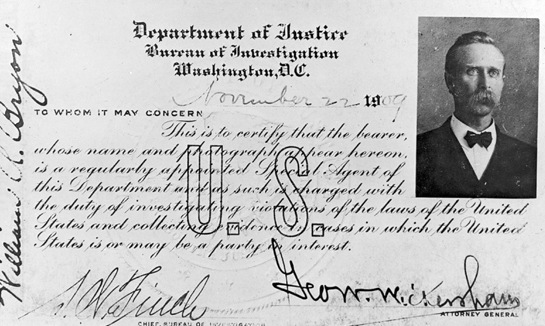 Department of Justice
Bureau of Investigation
Washington, D.C.
November 22 1909
TO WHOM IT MAY CONCERN
This is to certify that the bearer,
whose name and photograph appear hereon,
is a regularly appointed Special Agent of
this Department and as such is charged with
the duty of investigating violations of the laws of the United
States and collecting evidence in cases in which the United
States is or may be a party in interest.
U.S.
William A. Bryon
S W Finch
CHIEF BUREAU OF INVESTIGATION
Geo. W. Wickersham
ATTORNEY GENERAL